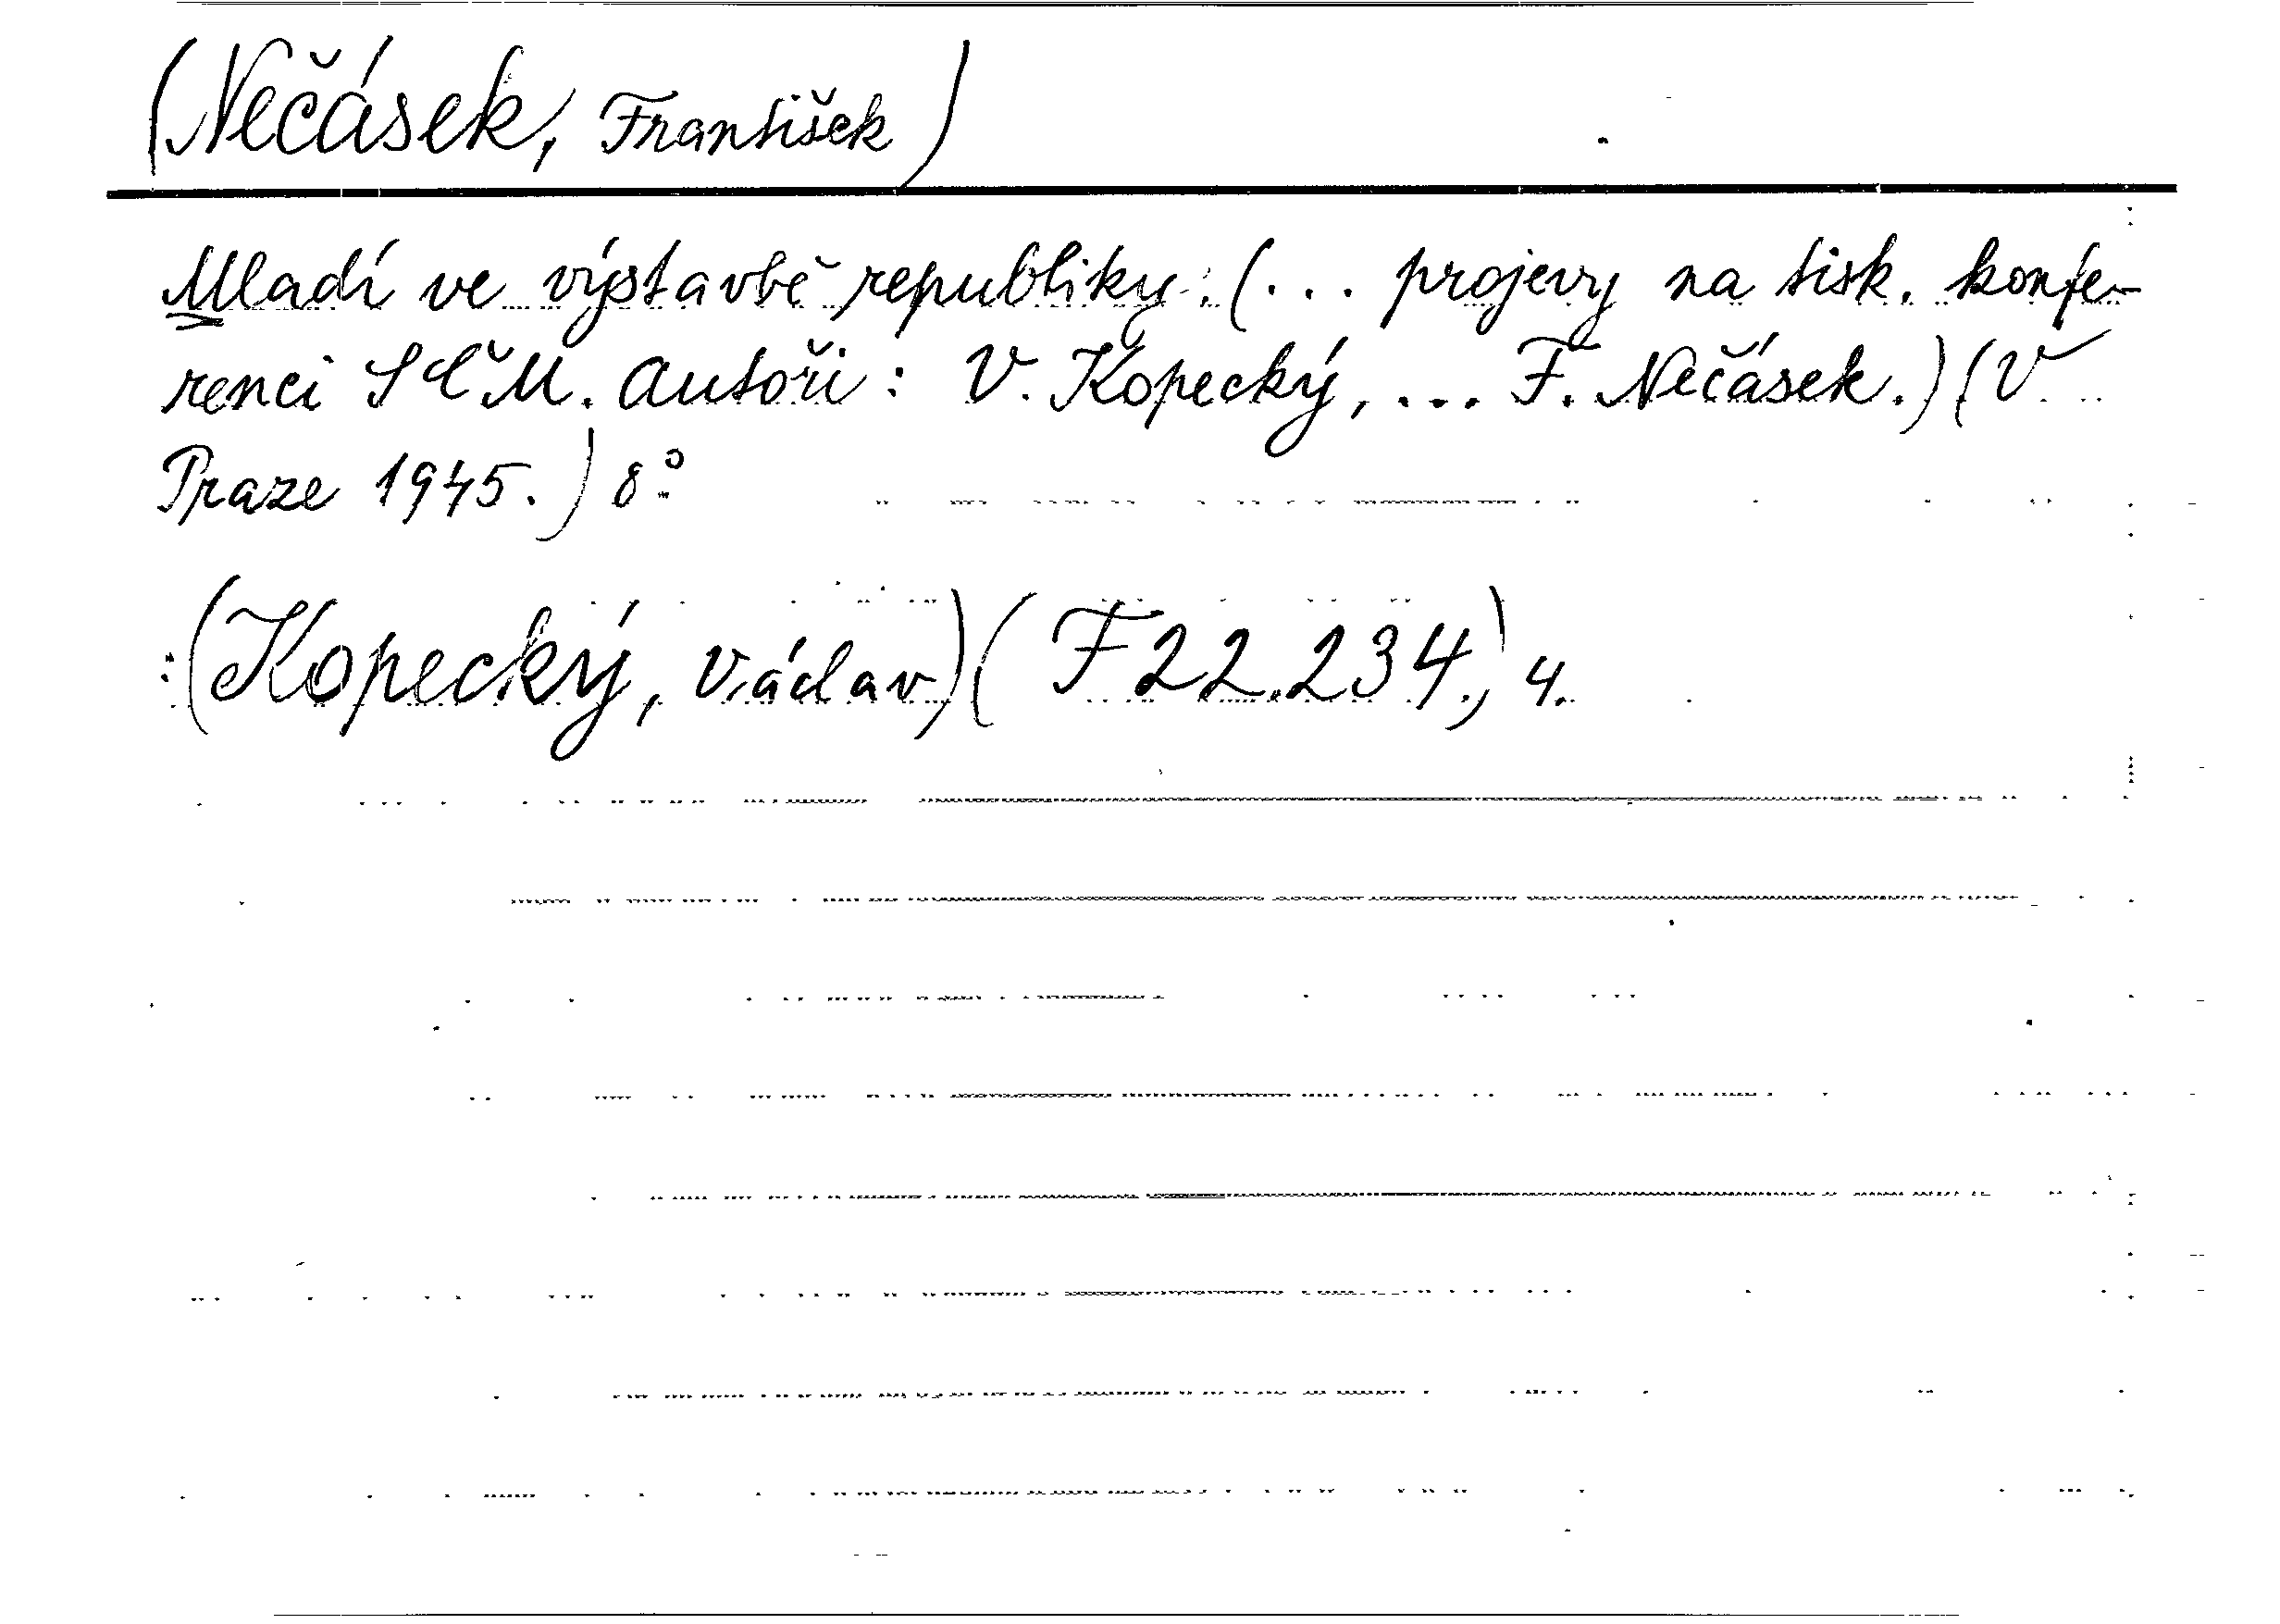 (Nečásek, František)
Mladí ve výstavbě republiky: (... projevy na tisk. konfe-
renci SČM. Autoři: V. Kopecký, ... F. Nečásek.) (V
Praze 1945.) 8°
:(Kopecký, Václav) (F 22.234.) 4.